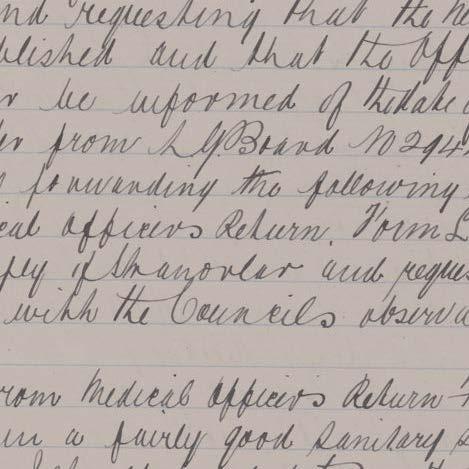 nd requesting that the ne
blished and that the Off
r be informed of the date
er from L G Board No 294
forwarding the following
ical Officers Return. Form
ply of Stranorlar and reques
with the Councils observa
rom Medical Officers Return
in a fairly good sanitary s